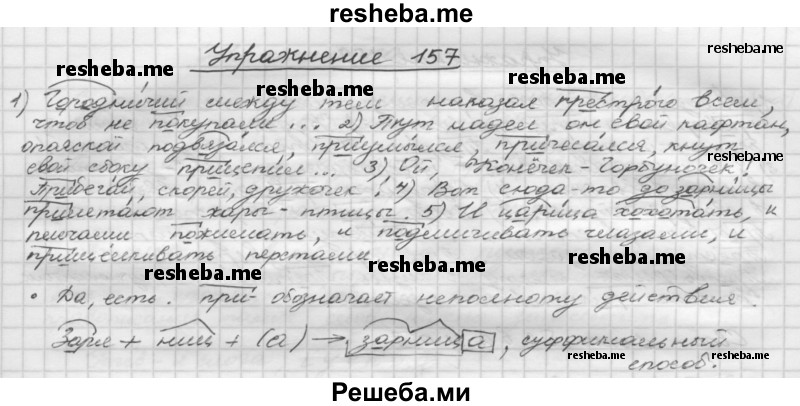 resheba.me
Упражнение 157
resheba.me
resheba.me
resheba.me
1) Городничий между тем наказал престрого всем,
чтоб не покупали... 2) Тут надел он свой кафтан,
опояской подвязался, приумылся, причесался, кнут
свой сбоку прицепил... 3) Ой, Конёчек-Горбуночек!
Прибегай, скорей, дружочек! 4) Вот сюда-то до зарницы
прилетают жары-птицы. 5) И царица хохотать, и
плечами пожимать, и подмигивать глазами, и
прищёлкивать перстами
resheba.me
resheba.me
• Да, есть. при- обозначает неполноту действия.
Заря + ниц + (а) → зарница, суффиксальный
способ.
resheba.me
resheba.me
resheba.me
Решеба.ми